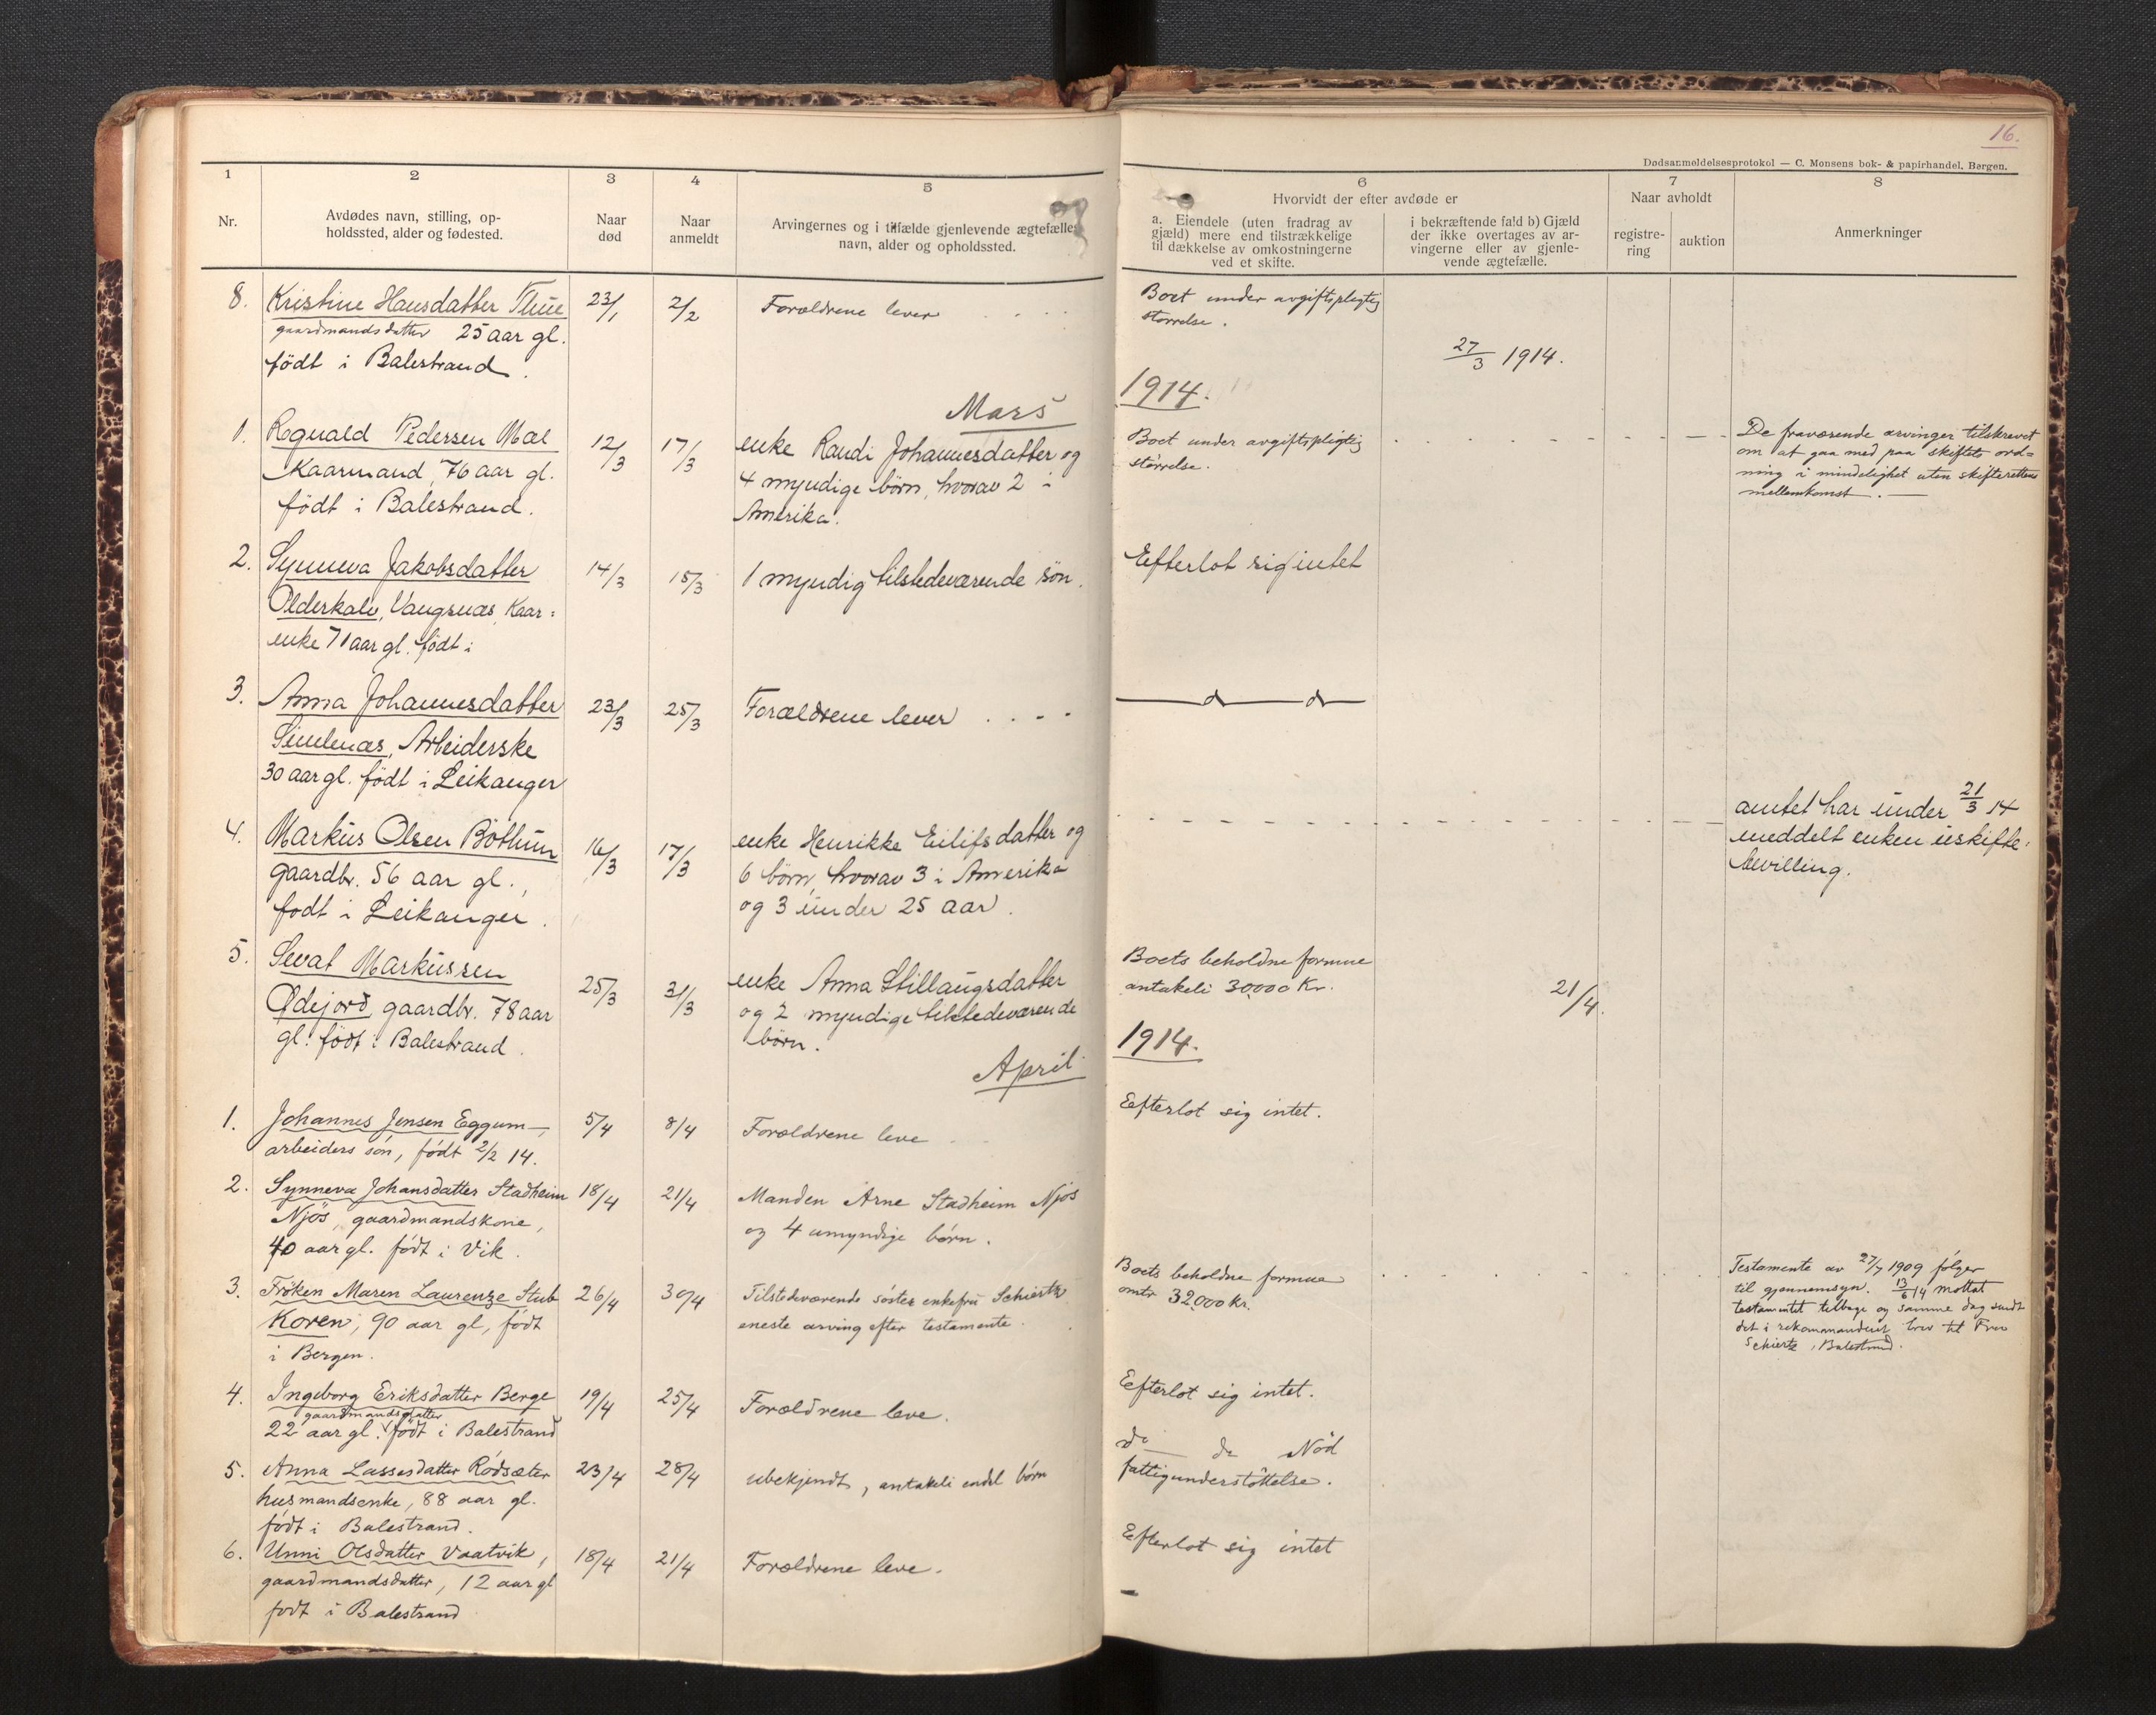 16.
Dødsanmeldelsesprotokol — C. Monsens bok- & papirhandel. Bergen.
1 2 3 4 5 6 7 8
Nr.
Avdødes navn, stilling, op-
holdssted, alder og fødested.
Naar
død
Naar
anmeldt
Arvingernes og i tilfælde gjenlevende ægtefælles
navn, alder og opholdssted.
Hvorvidt der efter avdøde er
a. Eiendele (uten fradrag av
gjæld) mere end tilstrækkelige
til dækkelse av omkostningerne
ved et skifte.
i bekræftende fald b) Gjæld
der ikke overtages av ar-
vingerne eller av gjenle-
vende ægtefælle.
Naar avholdt
registre-
ring
auktion
Anmerkninger
8. Kristine Hansdatter Thue 23/1 2/2 Forældrene lever
gaardmandsdatter 25 aar gl.
født i Balestrand.
Boet under avgiftspligtig
størrelse.
27/3 1914.
Mars 1914.
1. Rognald Pedersen Mæl 12/3 17/3 enke Randi Johannesdatter og
Kaarmand, 76 aar gl. 4 myndige børn, hvorav 2 i
født i Balestrand. Amerika.
Boet under avgiftspligtig
størrelse.
De fraværende arvinger tilskrevet
om at gaa med paa skiftets ord=
ning i mindelighet uten skifterettens
mellemkomst.
2. Synneva Jakobsdatter 14/3 15/3 1 myndig tilstedeværende søn.
Olderkalv, Vangsnæs, Kaar=
enke 71 aar gl. født i
Efterlot sig intet
3. Anna Johannesdatter 23/3 25/3 Forældrene lever
Simlenæs, Arbeiderske
30 aar gl. født i Leikanger
d d
4. Markus Olsen Bøthun 16/3 17/3 enke Henrikke Eilifsdatter og
gaardbr. 56 aar gl., 6 børn, hvorav 3 i Amerika
født i Leikanger. og 3 under 25 aar.
amtet har under 21/3 14
meddelt enken uskifte-
bevilling.
5. Sevat Markussen 25/3 31/3 enke Anna Stillaugsdatter
Ødejord gaardbr. 78 aar og 2 myndige tilstedeværende
gl. født i Balestrand. børn.
Boets beholdne formue
antakeli 30000 Kr.
21/4.
April 1914.
1. Johannes Jensen Eggum 5/4 8/4 Forældrene leve
arbeiders søn, født 2/2 14.
Efterlot sig intet.
2. Synneva Johansdatter Stadheim 18/4 21/4 Manden Arne Stadheim Njøs
Njøs, gaardmandskone, og 4 umyndige børn.
40 aar gl. født i Vik.
3. Frøken Maren Laurenze Stub 26/4 30/4 Tilstedeværende søster enkefru Schiertz
Koren, 90 aar gl, født eneste arving efter testamente.
i Bergen.
Boets beholdne formue
omtr 32000 kr.
Testamente av 27/7 1909 følger
til gjennemsyn. 13/6 14 mottat
testamentet tilbage og samme dag sendt
det i rekommanderet brev til Frue
Schiertz, Balestrand.
4. Ingeborg Eriksdatter Berge 19/4 25/4 Forældrene leve.
gaardmandsdatter
22 aar gl. født i Balestrand
Efterlot sig intet.
5. Anna Lassesdatter Rødsæter 23/4 28/4 ubekjendt, antakeli endel børn
husmandsenke, 88 aar gl.
født i Balestrand.
do do Nød
fattigunderstøttelse.
6. Unni Olsdatter Vaatvik, 18/4 21/4 Forældrene leve.
gaardmandsdatter, 12 aar gl
født i Balestrand
Efterlot sig intet